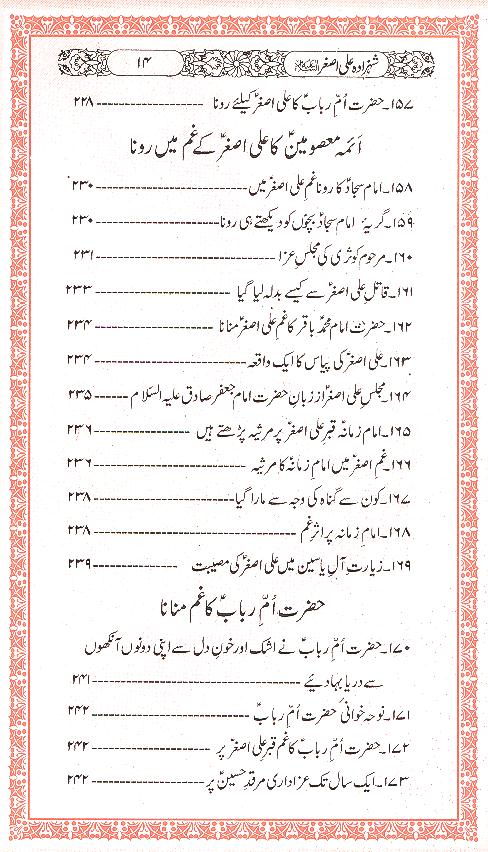 شہزادہ علی اصغرؑ ۱۴
۱۵۷۔ حضرت اُمّ ربابؑ کا علی اصغرؑ کیلئے رونا ------------------ ۲۲۸
آئمہ معصومینؑ کا علی اصغرؑ کے غم میں رونا
۱۵۸۔ امام سجادؑ کا رونا غمِ علی اصغرؑ میں ------------------ ۲۳۰
۱۵۹۔ گریۂ امام سجادؑ بچّوں کو دیکھتے ہی رونا ------------------ ۲۳۰
۱۶۰۔ مرحوم کوثری کی مجلسِ عزا ------------------ ۲۳۱
۱۶۱۔ قاتلِ علی اصغرؑ سے کیسے بدلہ لیا گیا ------------------ ۲۳۳
۱۶۲۔ حضرت امام محمدؑ باقر کا غمِ علی اصغرؑ منانا ------------------ ۲۳۴
۱۶۳۔ علی اصغرؑ کی پیاس کا ایک واقعہ ------------------ ۲۳۴
۱۶۴۔ مجلسِ علی اصغرؑ از زبانِ حضرت امام جعفر صادق علیہ السّلام ------ ۲۳۵
۱۶۵۔ امام زمانہؑ قبرِ علی اصغرؑ پر مرثیہ پڑھتے ہیں ------------------ ۲۳۶
۱۶۶۔ غمِ اصغرؑ میں امامِ زمانہؑ کا مرثیہ ------------------ ۲۳۶
۱۶۷۔ کون سے گناہ کی وجہ سے مارا گیا ------------------ ۲۳۸
۱۶۸۔ امامِ زمانہ پر اثرِ غم ------------------ ۲۳۸
۱۶۹۔ زیارتِ آلِ یاسین میں علی اصغرؑ کی مصیبت ------------------ ۲۳۹
حضرت اُمّ ربابؑ کا غم منانا
۱۷۰۔ حضرت اُمّ ربابؑ نے اشک اور خونِ دل سے اپنی دونوں آنکھوں
سے دریا بہا دیئے ------------------ ۲۴۱
۱۷۱۔ نوحہ خوانیٔ حضرت اُمّ ربابؑ ------------------ ۲۴۲
۱۷۲۔ حضرت اُمّ ربابؑ کا غم قبرِ علی اصغرؑ پر ------------------ ۲۴۲
۱۷۳۔ ایک سال تک عزاداری مرقدِ حسینؑ پر ------------------ ۲۴۲